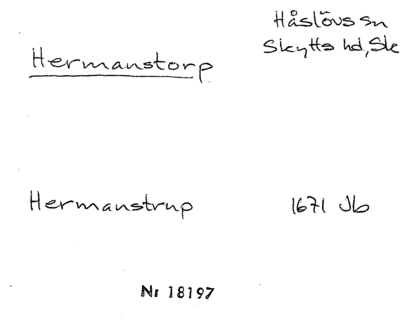 Håslövs sn
Skytts hd, Sk
Hermanstorp
Hermanstrup 1671 Jb
Nr 18197